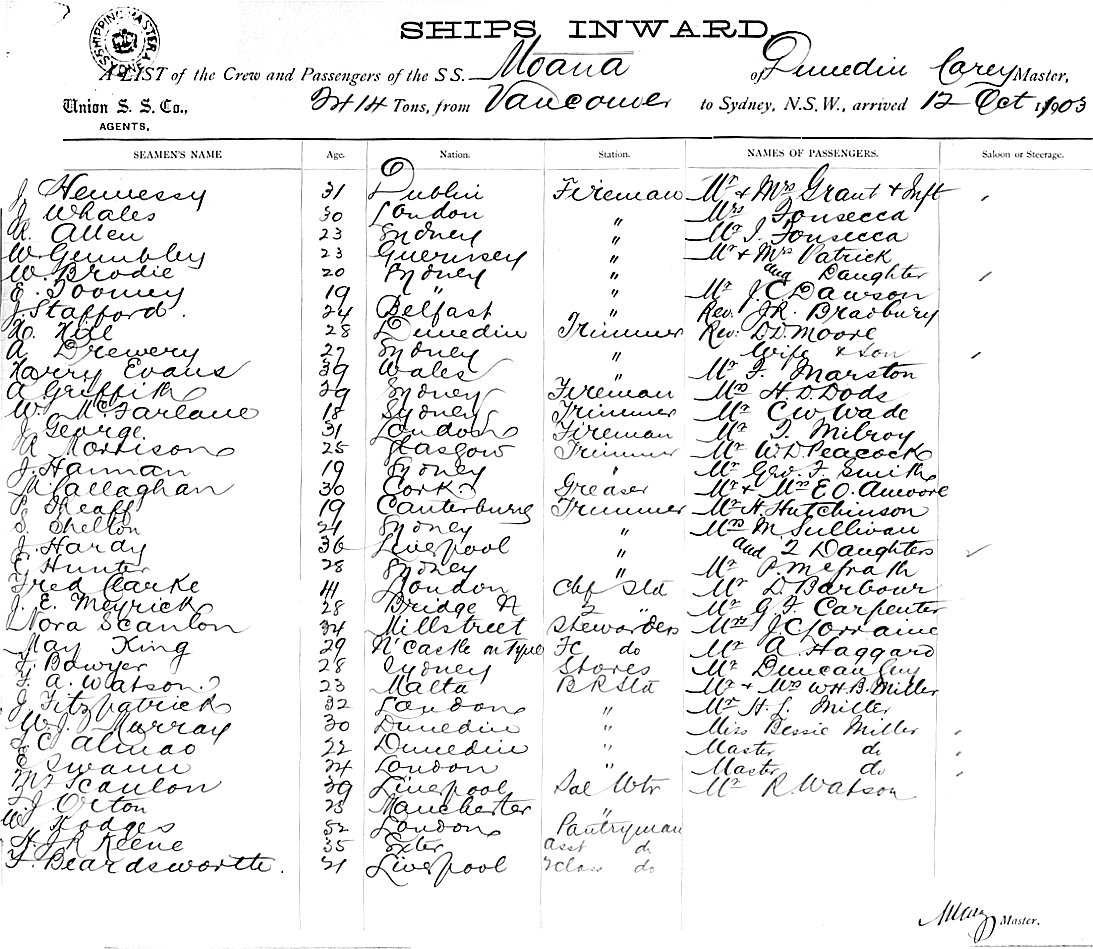 SHIPS INWARD.
SHIPPING MASTER
A LIST of the Crew and Passengers of the S.S. Moana of Dunedin Carey Master,
Union S. S. Co., 2414 Tons, from Vancouver to Sydney, N.S.W., arrived 12 Oct 1903
AGENTS,
SEAMEN'S NAME Age. Nation. Station. NAMES OF PASSENGERS. Saloon or Steerage.
J Hennessy 31 Dublin Fireman Mr & Mrs Grant & Inft
J Whales 30 London " Mrs Fonsecca
R. Allen 23 Sydney " Mr I. Fonsecca
W Gumbley 23 Guernsey " Mr & Mrs Patrick
W. Brodie 20 Sydney " and Daughter
E. Toomey 19 " " Mr J. C Dawson
J Stafford. 24 Belfast " Rev. J.R. Bradbury
H. Hill 28 Dunedin Trimmer Rev. D.D. Moore
A Drewery 27 Sydney " Wife & Son
Harry Evans 39 Wales " Mr F. Marston
A Griffith 29 Sydney Fireman Mrs H. D. Dods
W. McFarlane 18 Sydney Trimmer Mr C. W. Wade
J George. 31 London Fireman Mr T. Milroy
A Morrison 25 Glasgow Trimmer Mr W. D. Peacock
J. Hannan 19 Sydney " Mr Geo. F Smith
M Callaghan 30 Cork Greaser Mr & Mrs E O.
P. Sheaff 19 Canterbury Trimmer Mr H. Hutchinson
S. Shelton 21 Sydney " Mrs M Sullivan
J. Hardy 36 Liverpool " and 2 Daughters
E. Hunter 28 Sydney " Mr P McGrath
Fred Clarke 41 London Chf Std Mr D. Barbour
J. E. Meyrick 28 Bridge 2 " Mr G. F. Carpenter
Nora Scanlon 34 Millstreet Stewardess Mrs J C Lorraine
May King 29 N'castle on Tyne FC do Mr A Haggard
F. Bowyer 28 Sydney Stores Mr Duncan Guy
F. A. Watson. 23 Malta B R Std Mr & Mrs W. H. B. Miller
J Fitzpatrick 32 London " Mr H. S. Miller
W. J. Murray 30 Dunedin " Miss Bessie Miller
C Almao 22 Dunedin " Master do
E Swann 24 London " Master do
M Scanlon 39 Liverpool Sal Wtr Mr R Watson
J. Orton 23 Manchester "
W. Hodges 52 London Pantryman
H. J. R Keene 35 Exter asst do
F. Beardsworth. 21 Liverpool 2 class do
Master.